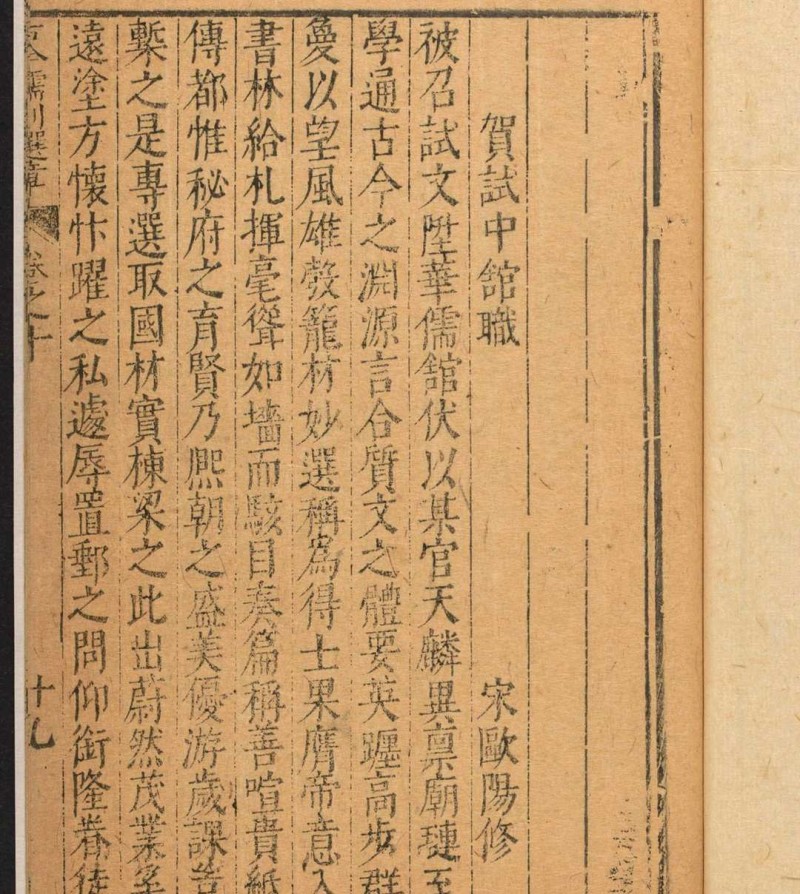 賀試中舘職 宋歐陽修
被召試文陞華儒舘伏以某官天麟異禀廟璉
學通古今之淵源言合質文之體要英躔高步群
以望風雄彀籠材妙選稱為得士果膺帝意入
書林給札揮毫聳如墻而駭目奏篇稱善喧貴紙
傳都惟秘府之育賢乃熈朝之盛美優游歲課
槧之是專選取國材實棟梁之此出蔚然茂業
遠塗方懷忭躍之私遽辱置郵之問仰銜隆眷徒
選章 卷之十 十九